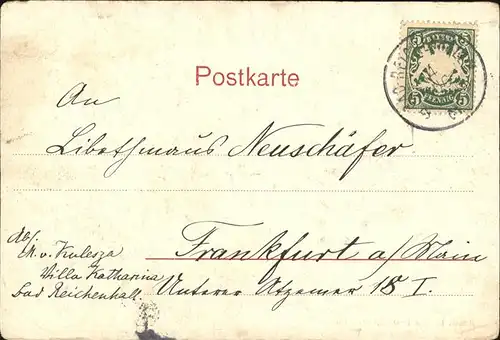 Postkarte
BAYERN
5 5
PFENNIG
An
Neuschäfer
Frankfurt a/Main
Unterer Atzemer 18 I.
Abs.
M. v. Kulesza
Villa Katharina
Bad Reichenhall.